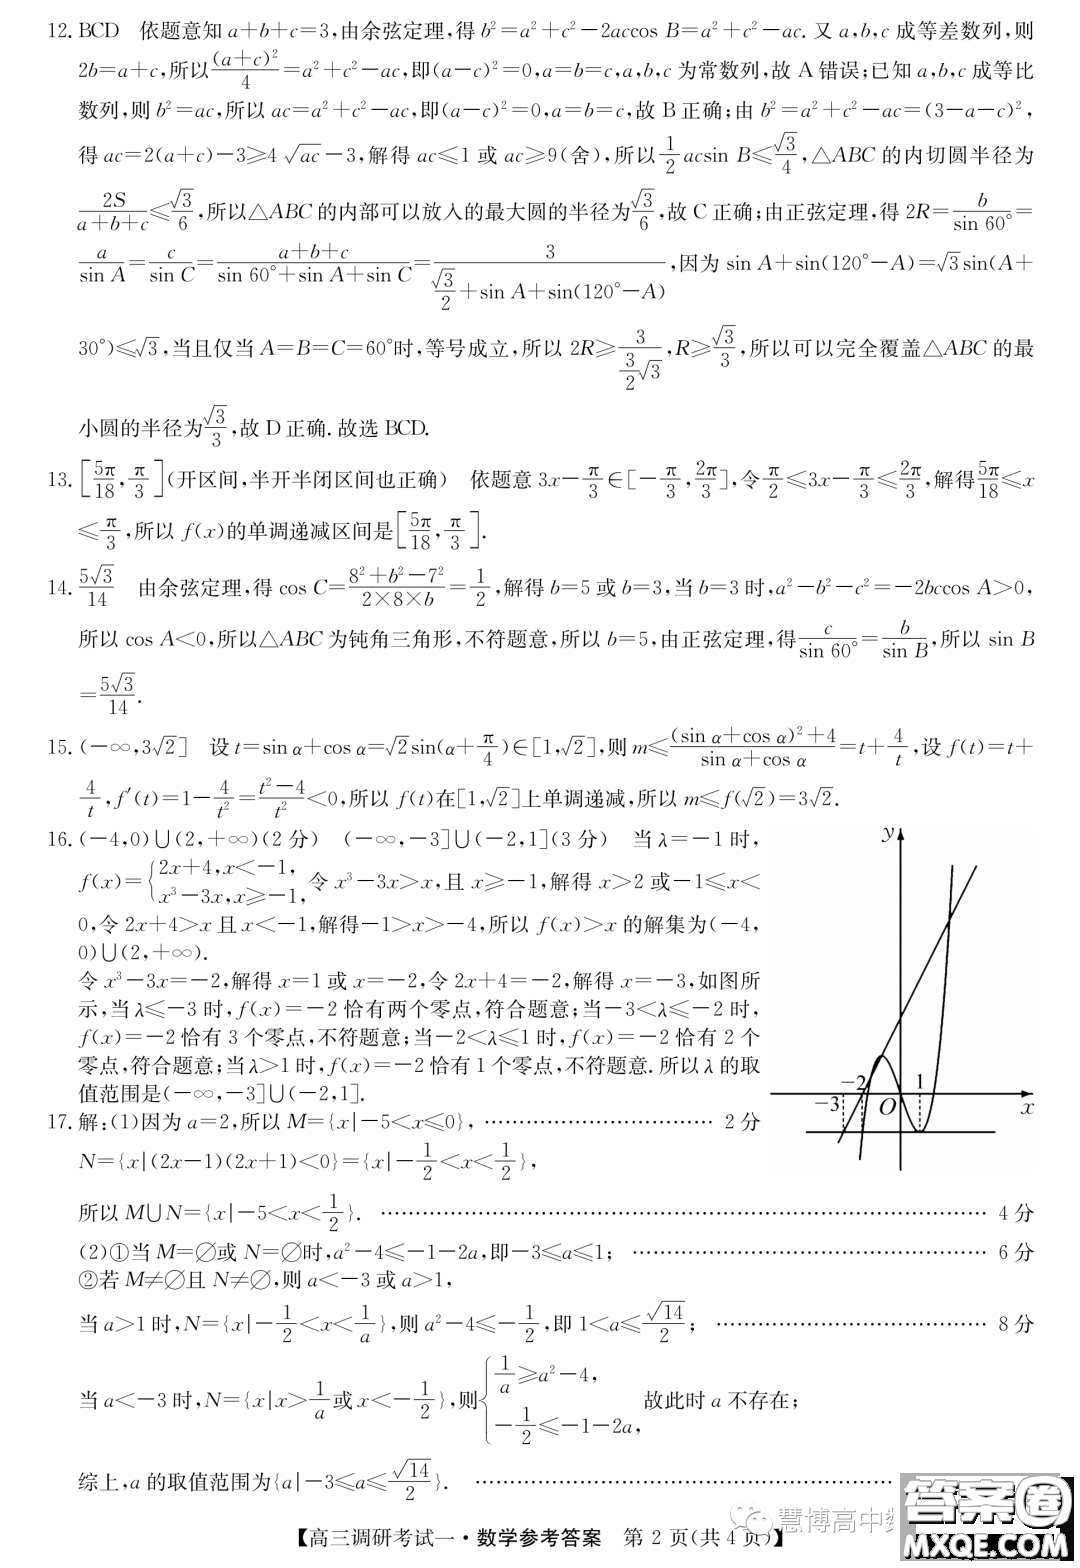 12. BCD 依题意知 a+b+c=3,由余弦定理,得 b²=a²+c²-2accos B=a²+c²-ac. 又 a,b,c 成等差数列,则
2b=a+c,所以(a+c)²/4=a²+c²-ac,即(a-c)²=0,a=b=c,a,b,c 为常数列,故 A 错误;已知 a,b,c 成等比
数列,则 b²=ac,所以 ac=a²+c²-ac,即(a-c)²=0,a=b=c,故 B 正确;由 b²=a²+c²-ac=(3-a-c)²,
得 ac=2(a+c)-3≥4√ac-3,解得 ac≤1 或 ac≥9(舍),所以1/2 acsin B≤√3/4,△ABC 的内切圆半径为
2S/(a+b+c)≤√3/6,所以△ABC 的内部可以放入的最大圆的半径为√3/6,故 C 正确;由正弦定理,得 2R=b/sin 60°=
a/sin A=c/sin C=(a+b+c)/(sin 60°+sin A+sin C)=3/(√3/2+sin A+sin(120°-A)),因为 sin A+sin(120°-A)=√3sin(A+
30°)≤√3,当且仅当 A=B=C=60°时,等号成立,所以 2R≥3/(3/2 √3),R≥√3/3,所以可以完全覆盖△ABC 的最
小圆的半径为√3/3,故 D 正确. 故选 BCD.
13. [5π/18,π/3](开区间,半开半闭区间也正确) 依题意 3x-π/3∈[-π/3,2π/3],令π/2≤3x-π/3≤2π/3,解得5π/18≤x
≤π/3,所以 f(x)的单调递减区间是[5π/18,π/3].
14. 5√3/14 由余弦定理,得 cos C=(8²+b²-7²)/(2×8×b)=1/2,解得 b=5 或 b=3,当 b=3 时,a²-b²-c²=-2bccos A>0,
所以 cos A<0,所以△ABC 为钝角三角形,不符题意,所以 b=5,由正弦定理,得c/sin 60°=b/sin B,所以 sin B
=5√3/14.
15. (-∞,3√2] 设 t=sin α+cos α=√2sin(α+π/4)∈[1,√2],则 m≤((sin α+cos α)²+4)/(sin α+cos α)=t+4/t,设 f(t)=t+
4/t,f′(t)=1-4/t²=(t²-4)/t²<0,所以 f(t)在[1,√2]上单调递减,所以 m≤f(√2)=3√2.
16. (-4,0)∪(2,+∞)(2 分) (-∞,-3]∪(-2,1](3 分) 当 λ=-1 时,
f(x)={2x+4,x<-1, x³-3x,x≥-1, 令 x³-3x>x,且 x≥-1,解得 x>2 或-1≤x<
0,令 2x+4>x 且 x<-1,解得-1>x>-4,所以 f(x)>x 的解集为(-4,
0)∪(2,+∞).
令 x³-3x=-2,解得 x=1 或 x=-2,令 2x+4=-2,解得 x=-3,如图所
示,当 λ≤-3 时,f(x)=-2 恰有两个零点,符合题意;当-3<λ≤-2 时,
f(x)=-2 恰有 3 个零点,不符题意;当-2<λ≤1 时,f(x)=-2 恰有 2 个
零点,符合题意;当 λ>1 时,f(x)=-2 恰有 1 个零点,不符题意. 所以 λ 的取
值范围是(-∞,-3]∪(-2,1].
y
-2
1
-3
O
x
17. 解:(1)因为 a=2,所以 M={x|-5<x≤0}, …………………………… 2 分
N={x|(2x-1)(2x+1)<0}={x|-1/2<x<1/2},
所以 M∪N={x|-5<x<1/2}. …………………………… 4 分
(2)①当 M=∅或 N=∅时,a²-4≤-1-2a,即-3≤a≤1; …………………………… 6 分
②若 M≠∅且 N≠∅,则 a<-3 或 a>1,
当 a>1 时,N={x|-1/2<x<1/a},则 a²-4≤-1/2,即 1<a≤√14/2; …………………………… 8 分
当 a<-3 时,N={x|x>1/a或 x<-1/2},则{1/a≥a²-4, -1/2≤-1-2a, 故此时 a 不存在;
综上,a 的取值范围为{a|-3≤a≤√14/2}. ……………………………
慧博高中数
答案圈
MXQE.COM
【高三调研考试一·数学参考答案 第 2 页(共 4 页)】